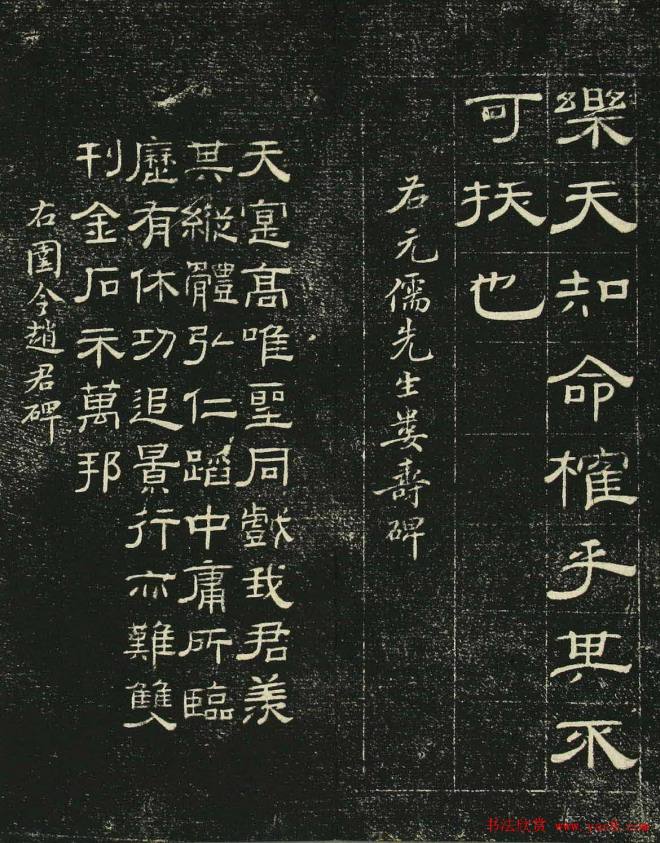 樂天知命榷乎其不
可拔也
右元儒先生婁壽碑
天寔高唯聖同戲我君羨
其縱體弘仁蹈中庸所臨
歷有休功追景行亦難雙
刊金石示萬邦
右圉令趙君碑
书法欣赏 www.yac8.com